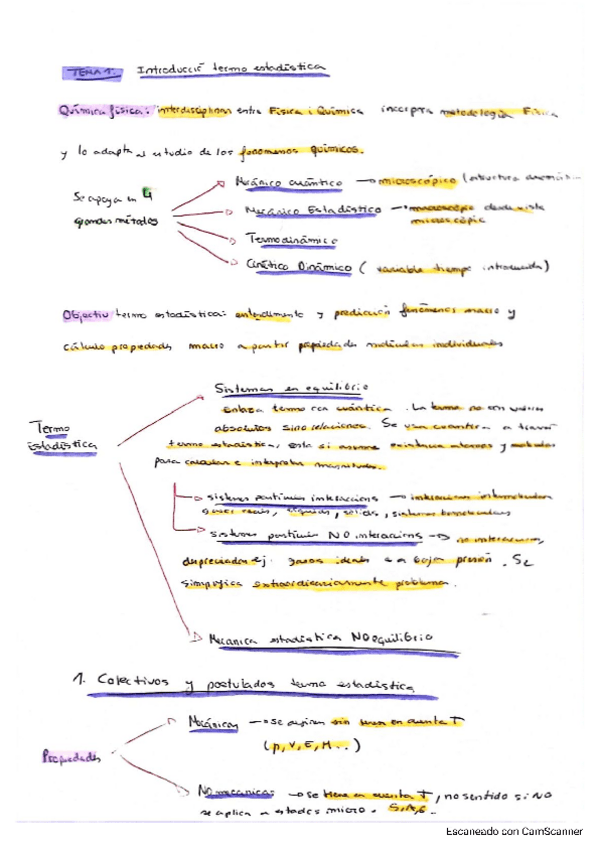 TEMA 1. Introducció termo estadística
Química física: interdisciplinar entre Física i Química incorpora metodología Física
y lo adapta al estudio de los fenomenos químicos.
Se apoya en 4
grandes métodos
Mecánica cuántica → microscópico (estructura
Mecánica Estadística → macroscópico desde vista
microscópic
Termodinámica
Cinética Dinámica (variable tiempo introducida)
Objectiu termo estadística: entendimento y predicción fenómenos macro y
cálculo propiedades macro a partir propiedades moléculas individuales
Termo
estadística
Sistemas en equilibrio
enlaza termo con cuántica. La termo no con valores
absolutos sino relaciones. Se usa cuántica a través
termo estadística, esta si asume existencia y
para calcular e interpretar magnitudes.
sistemas partículas interaccions → interacciones intermoleculares
gases reales, líquidos, sólidos, sistemas
sistemas partículas NO interaccions → no interacciones,
despreciados ej. gases ideales a baja presión. Se
simplifica extraordinariamente problema.
Mecánica estadística NO equilibrio
1. Colectivos y postulados termo estadística
Propiedades
Mecánicas → se definen sin tener en cuenta T
(p, V, E, M...)
No mecánicas → se tiene en cuenta T, no sentido si NO
se aplica a estados micro. S, A, G.
Escaneado con CamScanner